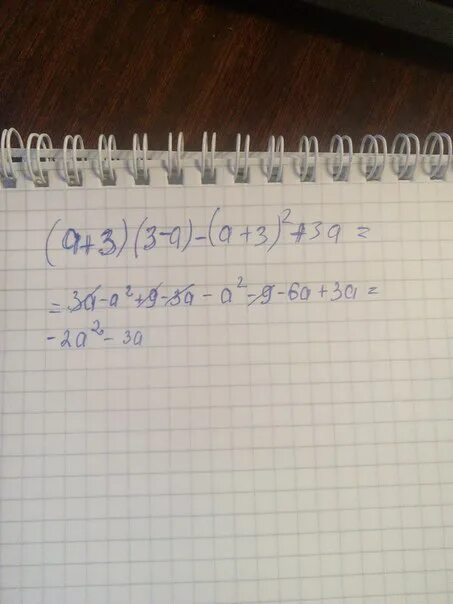 (a+3)(3-a)-(a+3)²+3a=
=3a-a²+9-3a-a²-9-6a+3a=
-2a²-3a